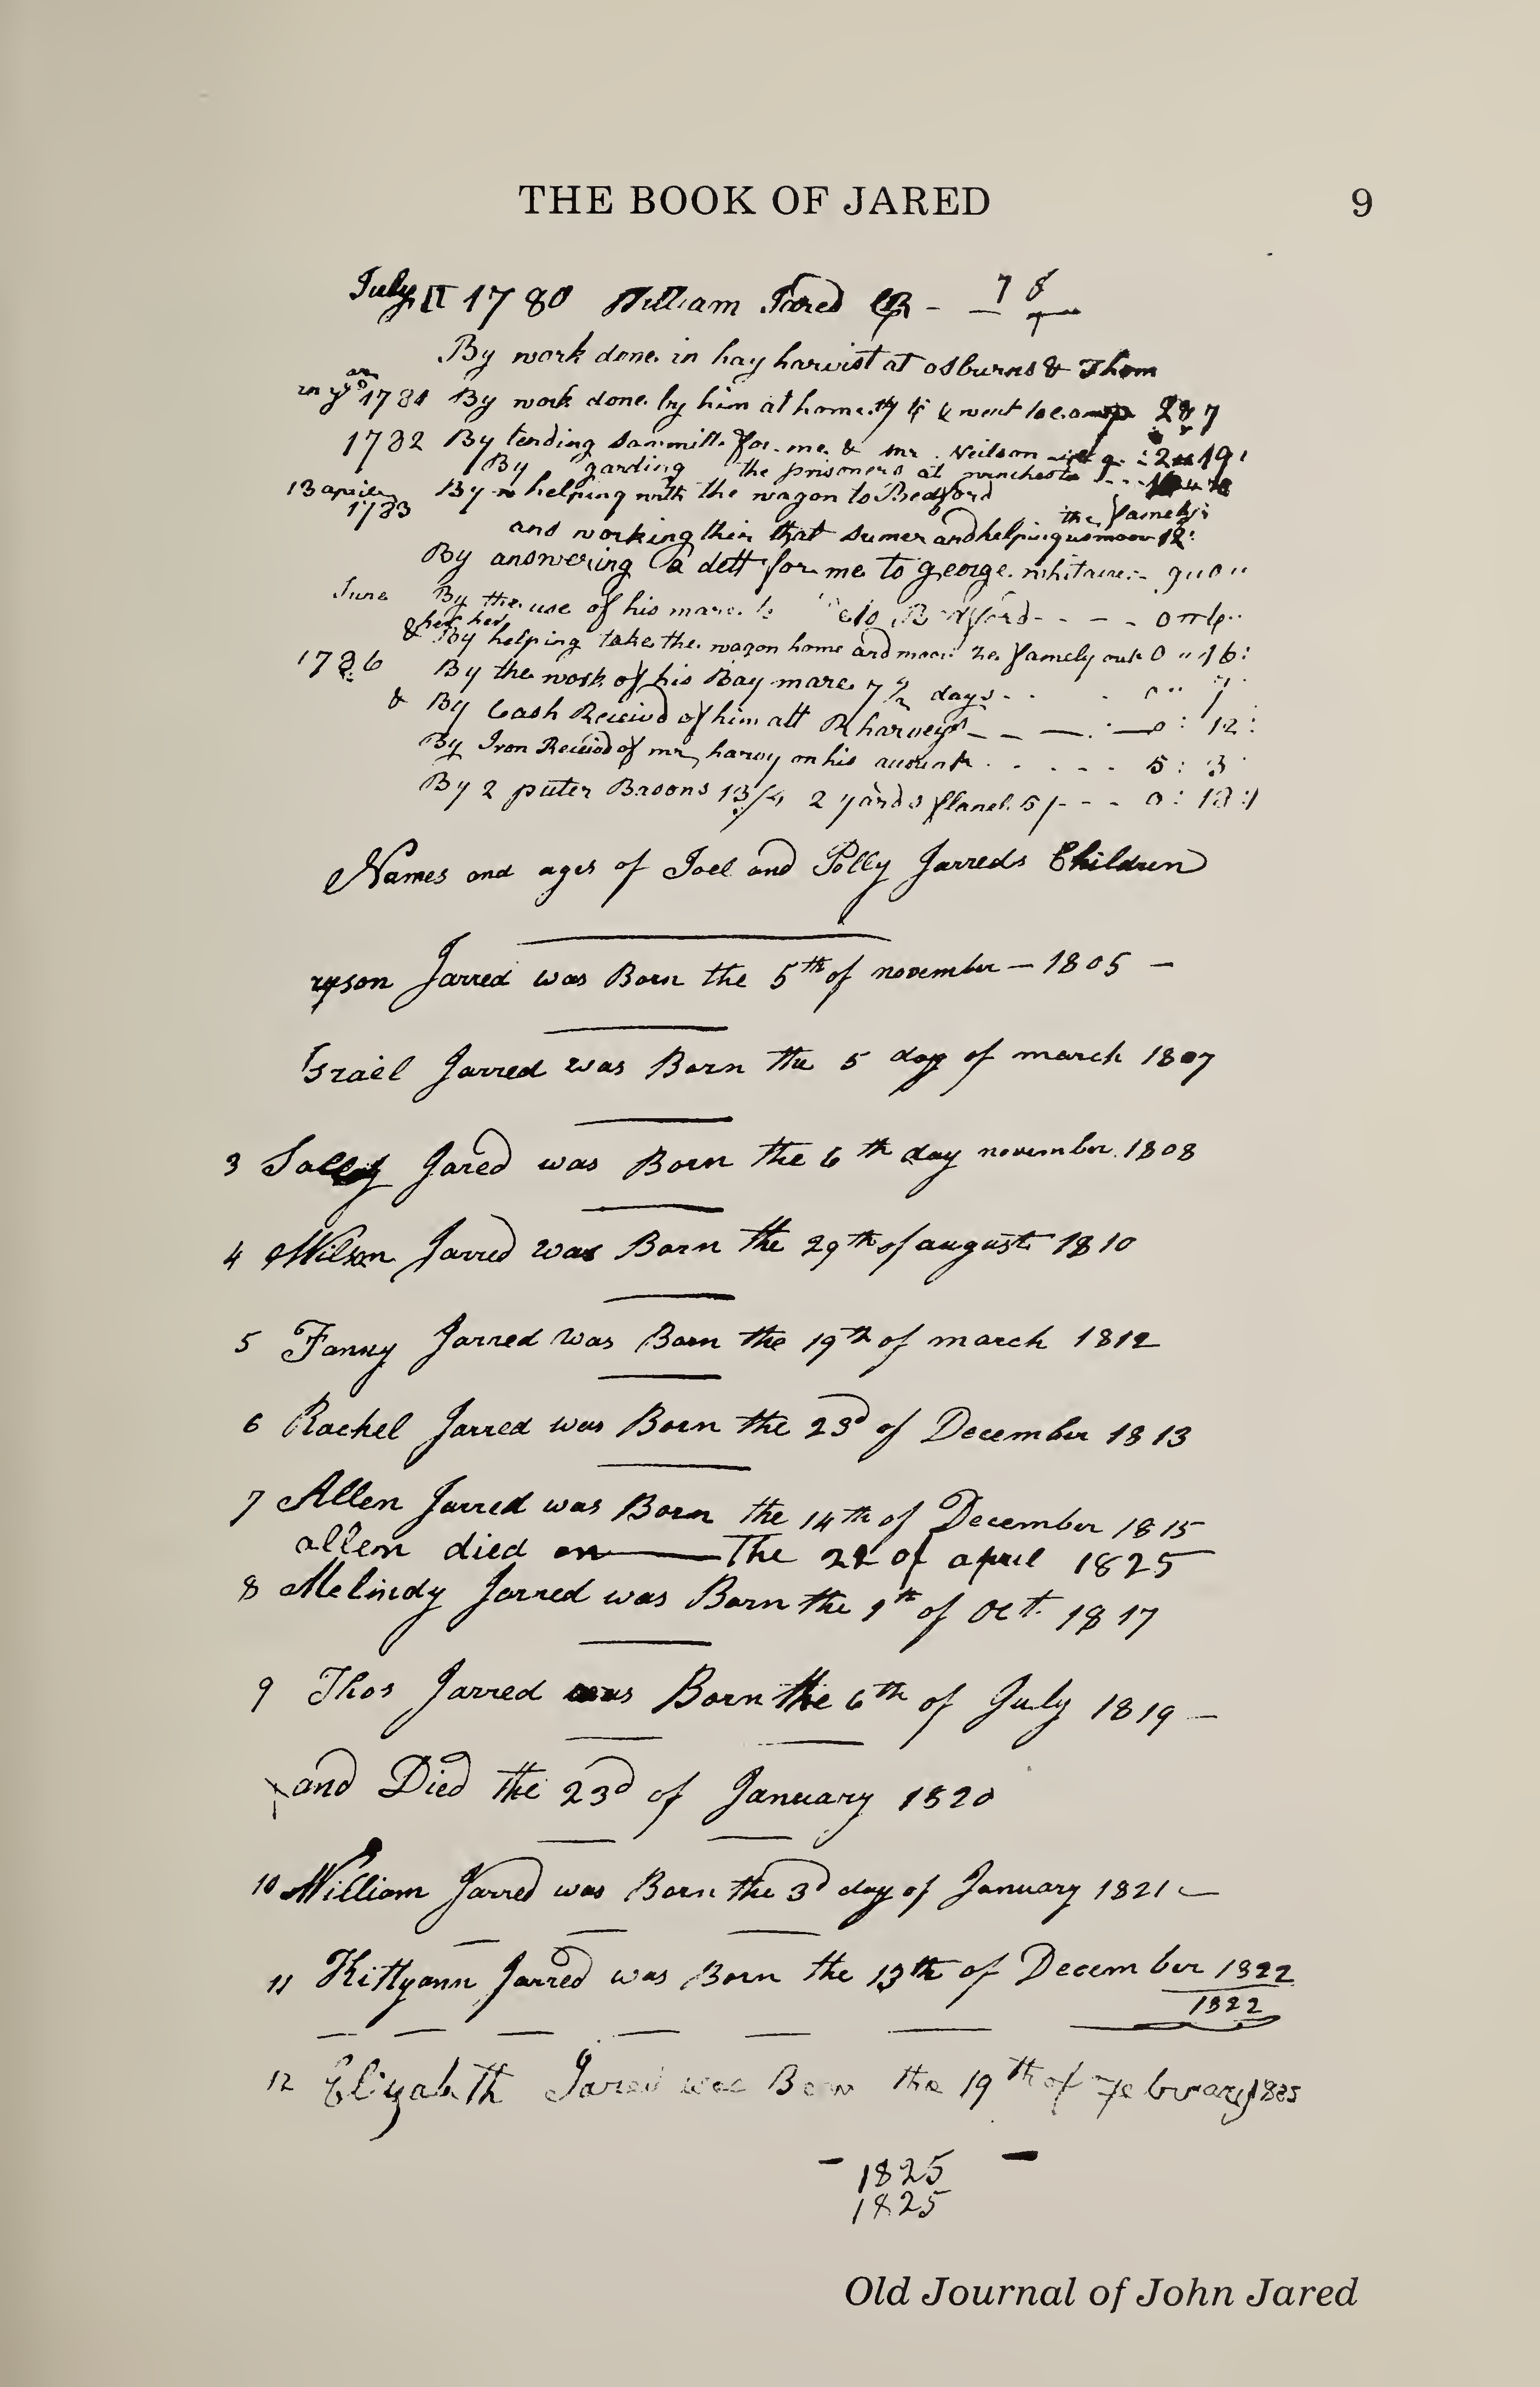 THE BOOK OF JARED 9
July 1780 William Jared
By work done in hay harvist at osburns & Thom
1781 By work done by him at home & went to camp 7
1782 By tending sawmill for me & mr Neilson 19
By garding the prisoners at winchester
13 april By helping with the wagon to Bedford
1783 the famely
and working their that sumer and helping us moov 12
By answering a dett for me to george
June By the use of his mare to Bedford - - - - 0
& By helping take the wagon home and moov famely out 0 " 16:
1786 By the work of his Bay mare 7 1/2 days
& By Cash Receivd of him att R harveys 0 : 12 :
By Iron Receivd of mr harvy on his acount 5 : 3
By 2 puter Basons 13/4 2 yards flanel 5/ - - - 0 : 18 :
Names and ages of Joel and Polly Jarreds Children
Jarred was Born the 5th of november — 1805 —
Israel Jarred was Born the 5 day of march 1807
3 Sally Jared was Born the 6th day november 1808
4 Wilson Jarred was Born the 29th of august 1810
5 Fanny Jarred was Born the 19th of march 1812
6 Rachel Jarred was Born the 23d of December 1813
7 Allen Jarred was Born the 14th of December 1815
allen died on The of april 1825
8 Melindy Jarred was Born the 9th of Oct. 1817
9 Thos Jarred was Born the 6th of July 1819 —
and Died the 23d of January 1820
10 William Jarred was Born the 3d day of January 1821 —
11 Kittyann Jarred was Born the 13th of December 1822
1822
12 Elizabeth Jared was Born the 19th of February 1825
- 1825 -
1825
Old Journal of John Jared